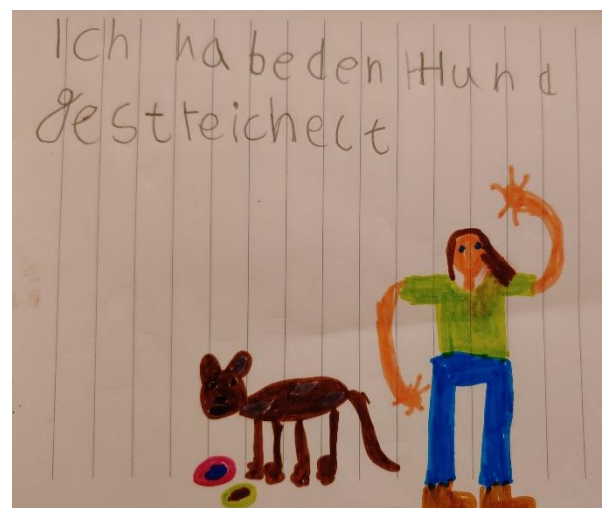 Ich habe den Hund
gestreichelt